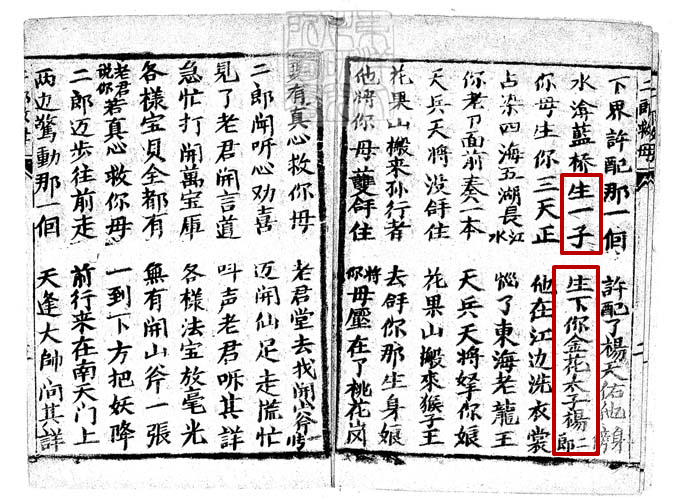 二郎救母
下界許配那一個 許配了楊天佑他身傍
水渰藍桥生一子 生下你金花太子楊二郎
你母生你三天正 他在江边洗衣裳
占染四海五湖長江水 惱了東海老龍王
你老刀面前奏一本 天兵天将拏你娘
天兵天将没㧱住 花果山搬來猴子王
花果山搬来孙行者 去㧱你那生身娘
他將你母雙㧱住 将你母壓在了桃花岗
要有真心救你母 老君堂去找開山斧
二郎闻听心劝喜 迈開仙足走慌忙
見了老君開言道 叫声老君听其詳
急忙打開萬宝库 各樣法宝放毫光
各樣宝貝全都有 無有開山斧一張
老君說你若真心救你母 一到下方把妖降
二郎迈步往前走 前行来在南天門上
两边驚動那一個 天逢大帥问其詳